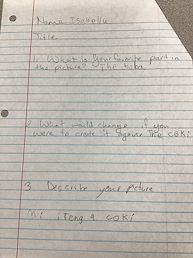 Name Isabella
Title
1. What is your favorite part in
the picture? The
2. What would change if you
were to create it again? The coki
3. Describe your picture
Mi iteng a coki